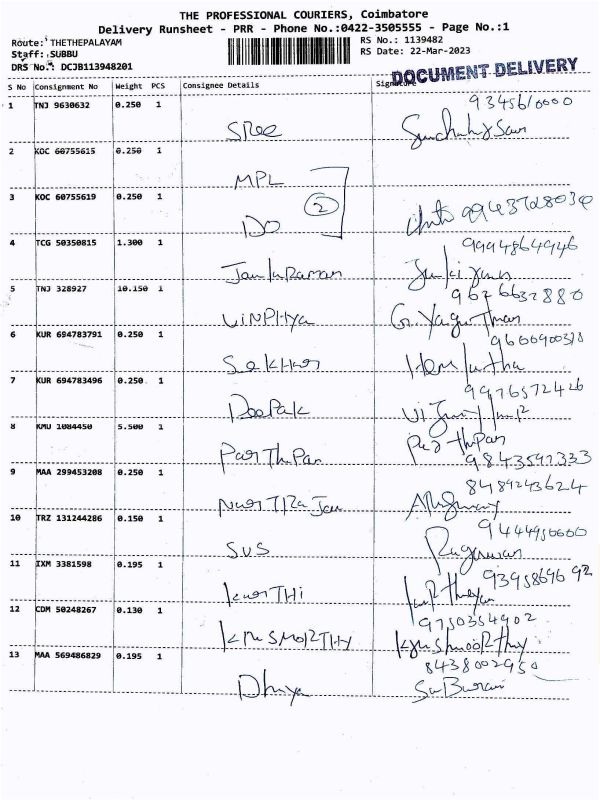 THE PROFESSIONAL COURIERS, Coimbatore
Delivery Runsheet - PRR - Phone No.:0422-3505555 - Page No.:1
Route: THETHEPALAYAM
RS No.: 1139482
Staff: SUBBU
RS Date: 22-Mar-2023
DRS No.: DCJB113948201
DOCUMENT DELIVERY
S No Consignment No Weight PCS Consignee Details Signature
1 TNJ 9630632 0.250 1
SREE
2 KOC 60755615 0.250 1
MPL
2
3 KOC 60755619 0.250 1
DO
4 TCG 50350815 1.300 1
9994864946
5 TNJ 328927 10.150 1
9626632880
VINPHYA
6 KUR 694783791 0.250 1
Sekhar
7 KUR 694783496 0.250 1
9976572426
DeePak
8 KMU 1084450 5.500 1
ParThPan ParThPan
9843597333
9 MAA 299453208 0.250 1
8489243624
10 TRZ 131244286 0.150 1
SVS
11 IXM 3381598 0.195 1
KarTHi
12 COM 50248267 0.130 1
9750354902
13 MAA 569486829 0.195 1
8438002950
Dhiya